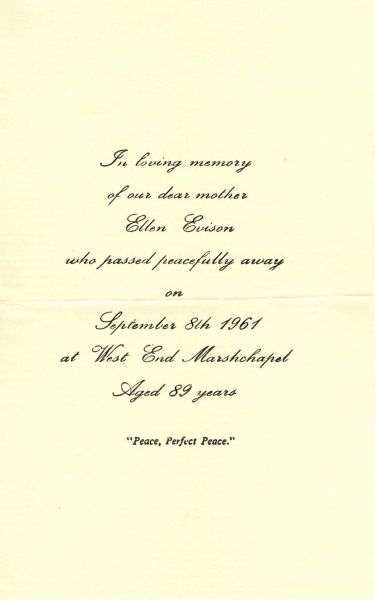 In loving memory
of our dear mother
Ellen Evison
who passed peacefully away
on
September 8th 1961
at West End Marshchapel
Aged 89 years
"Peace, Perfect Peace."